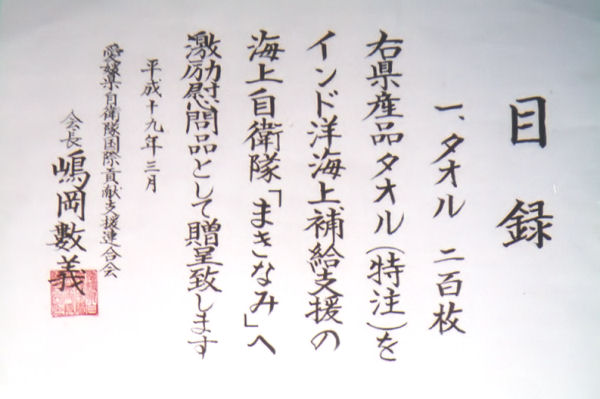 目録
一、タオル 二百枚
右県産品タオル(特注)を
インド洋海上補給支援の
海上自衛隊「まきなみ」へ
激励慰問品として贈呈致します
平成十九年三月
愛媛県自衛隊国際貢献支援連合会
会長 嶋岡數義